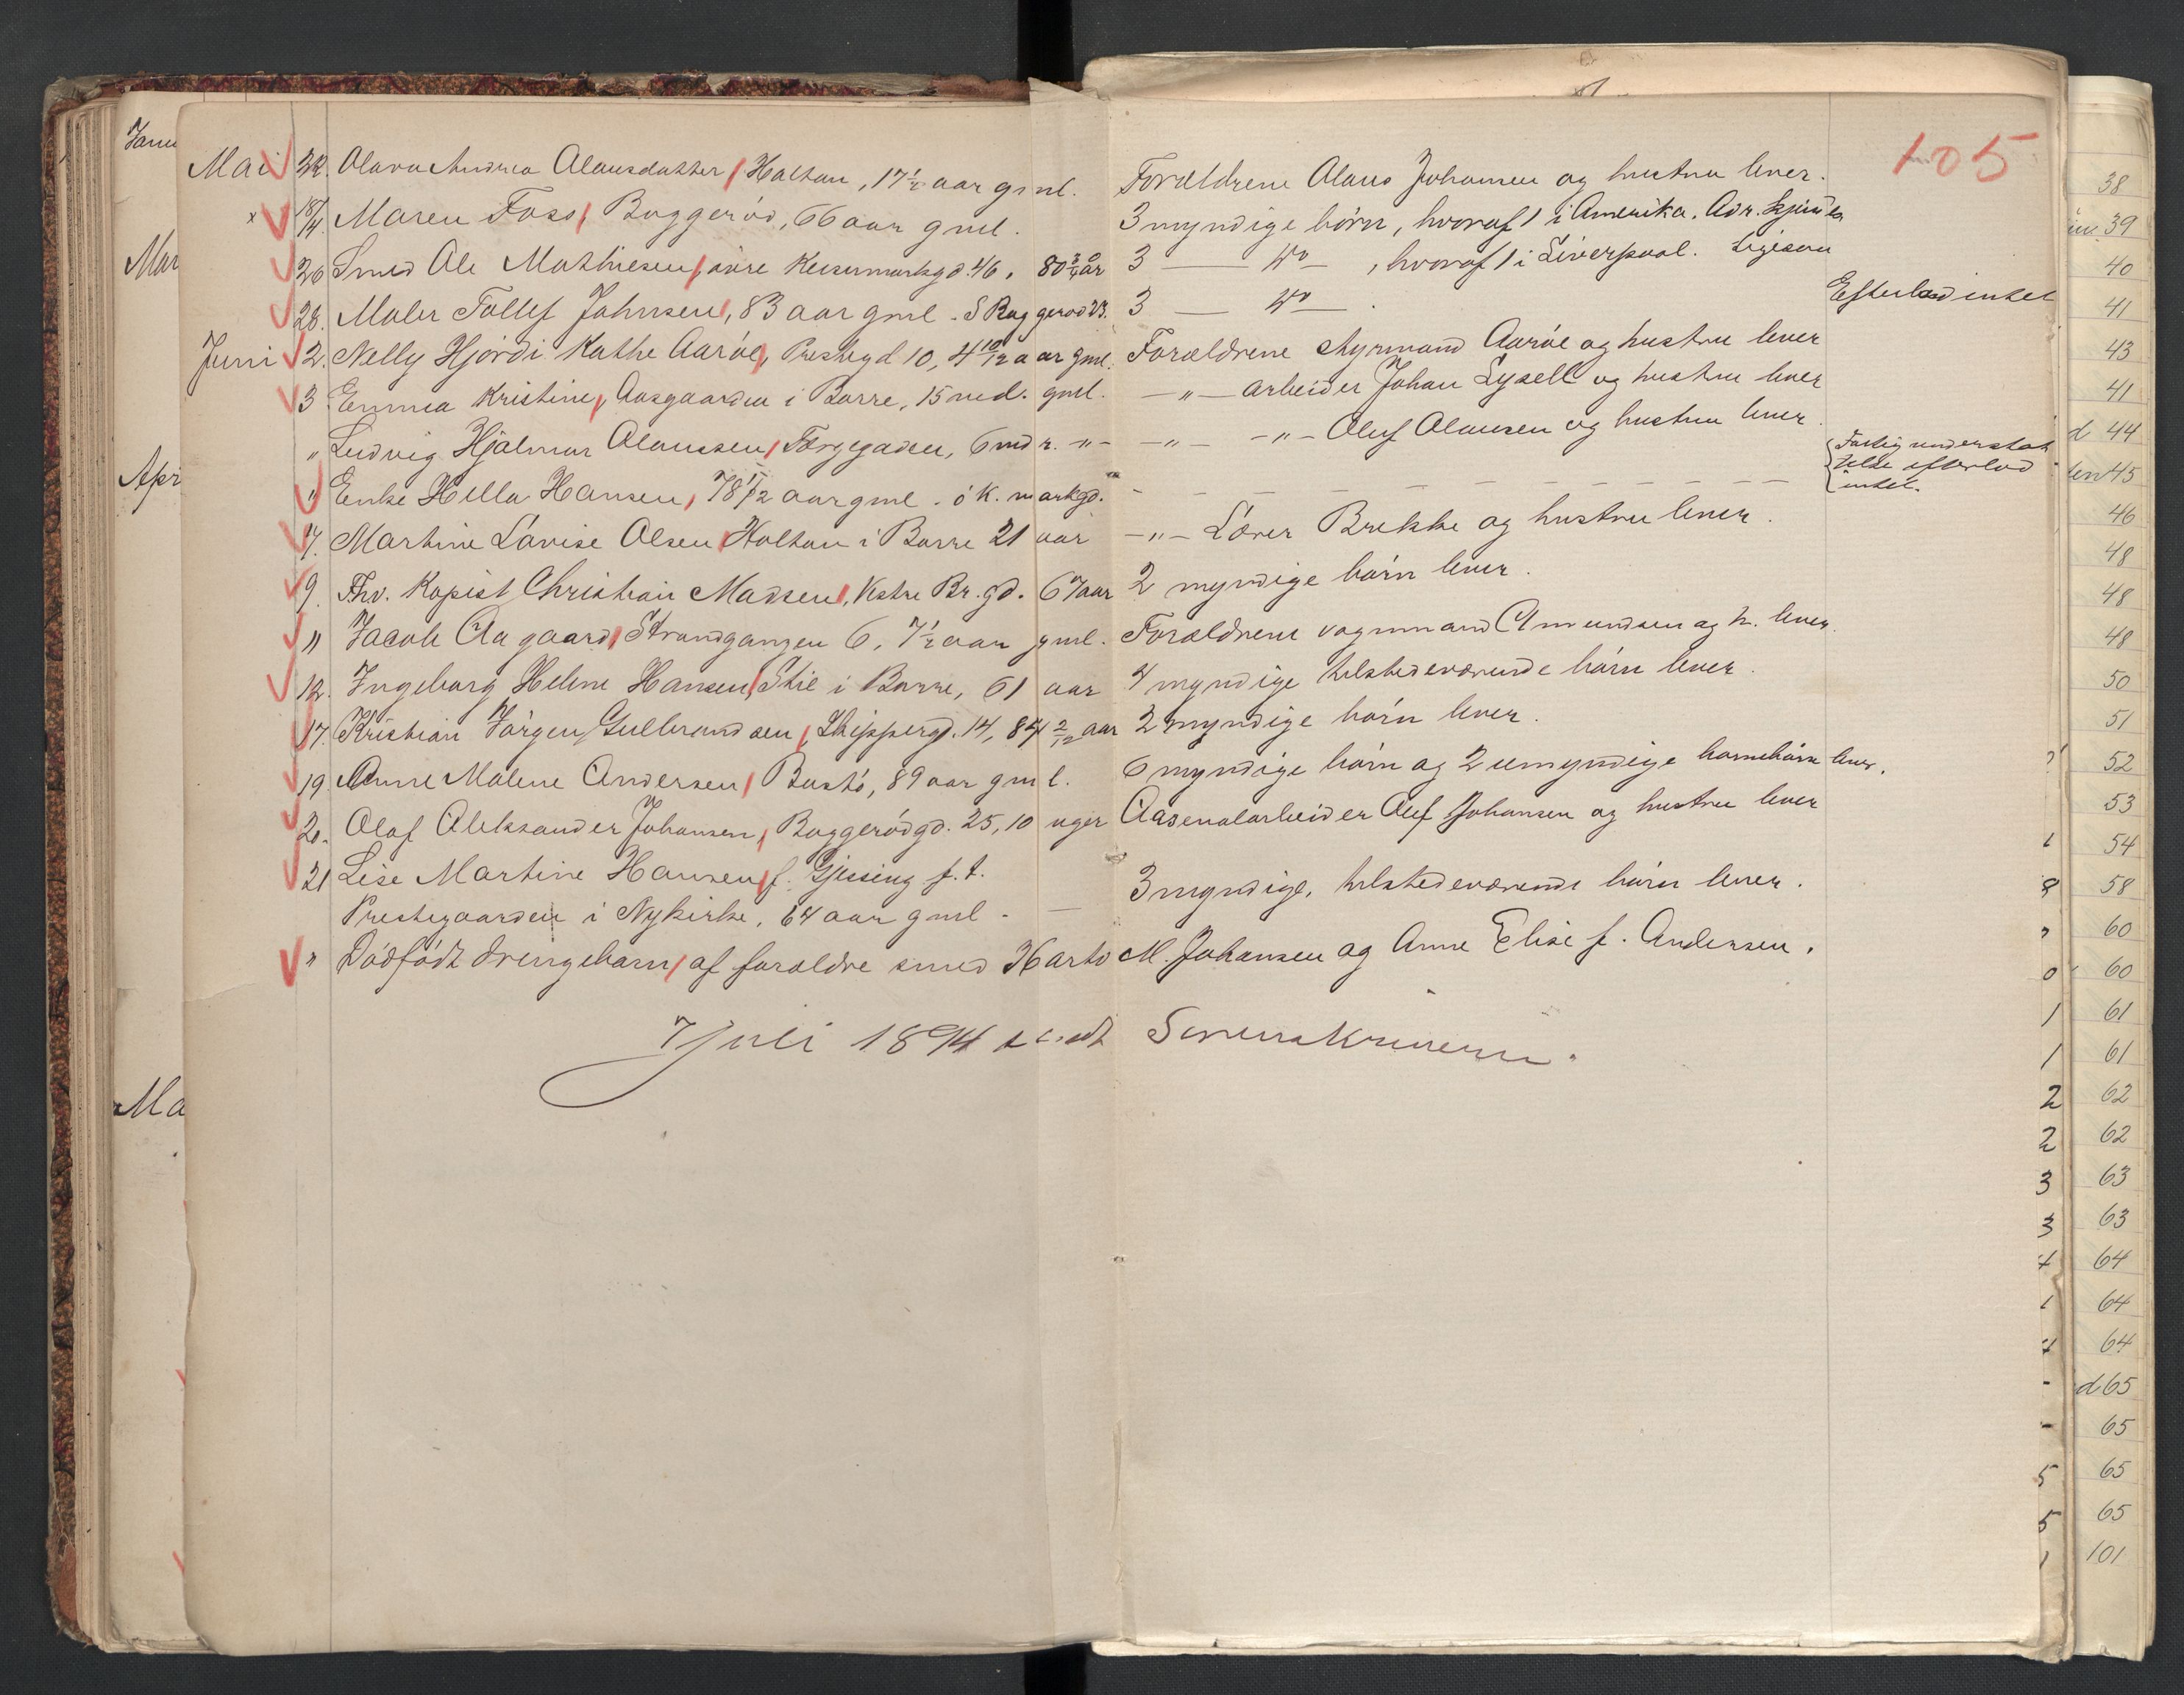 105
Mai 22. Olava Andrea Olausdatter, Holtan, 17½ aar gml. Forældrene Olaus Johansen og hustru lever.
x 18/4. Maren Foss, Baggeröd, 66 aar gml. 3 myndige börn, hvoraf 1 i Amerika. Adr.
26 Smed Ole Mathiesen, övre Keisermarkgd. 46, 80¾ år 3 — do — , hvoraf 1 i Liverpool. Ligesom
28. Maler Tollef Johnsen, 83 aar gml. S Baggerod 23. 3 — do — . Efterlod intet
Juni 2. Nelly Hjördi Kathe Aaröe, Prestegd 10, 4 10/12 aar gml. Forældrene styrmand Aaröe og hustru lever
3. Emma Kristine, Aasgaarden i Borre, 15 md. gml. —"— arbeider Johan Lysell og hustru lever
" Ludvig Hjalmar Olaussen, Færgegaden, 6 mdr. -"- —"— -"- Oluf Olausen og hustru lever.
" Enke Hella Hansen, 78 1/12 aar gml. ö K. markgd. - - - - - - - - - - Fattigunderstøt telse efterlod intet.
7. Martine Lovise Olsen, Holtan i Borre 21 aar —"— Lærer Brekke og hustru lever.
9. Fhv. Kopist Christian Madsen, Vestre Br. gd. 67 aar 2 myndige börn lever.
" Jacob Aagaard, Strandgangen 6, 7½ aar gml. Forældrene vognmand Amundsen og h. lever.
12. Ingeborg Helene Hansen, Stie i Borre, 61 aar 4 myndige tilstedeværende börn lever.
17. Kristian Jörgen Gulbrandsen, Skippergd. 14, 84 2/12 aar 2 myndige börn lever.
19 Anne Malene Andersen, Bastö, 89 aar gml. 6 myndige börn og 2 umyndige barnebörn lever.
20. Olaf Aleksander Johansen, Baggerödgd. 25, 10 uger Aasenalarbeider Oluf Johansen og hustru lever
21 Lise Martine Hansen f. Gjessing f. t.
Prestegaarden i Nykirke, 64 aar gml. — 3 myndige, tilstedeværende börn lever.
" Dödfödt drengebarn, af forældre smed Harto M. Johansen og Anne Elise f. Andersen.
7 Juli 1894 sendt Sorenskriveren.
Janu
Mar
Apr
Ma
38
39
40
41
43
41
d 44
45
46
48
48
48
50
51
52
53
54
58
60
60
61
61
62
62
63
63
64
64
64
d 65
65
65
65
101